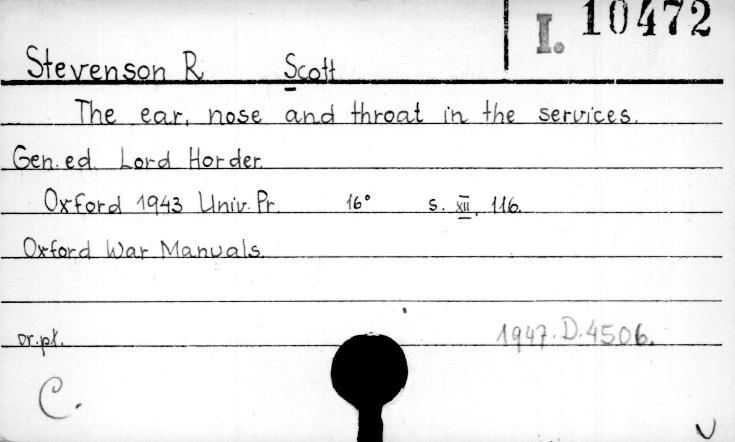 I. 10472
Stevenson R Scott
The ear, nose and throat in the services.
Gen. ed. Lord Horder.
Oxford 1943 Univ. Pr. 16° s. XII, 116.
Oxford War Manuals.
or.pt. 1947.D.4506.
C.
V